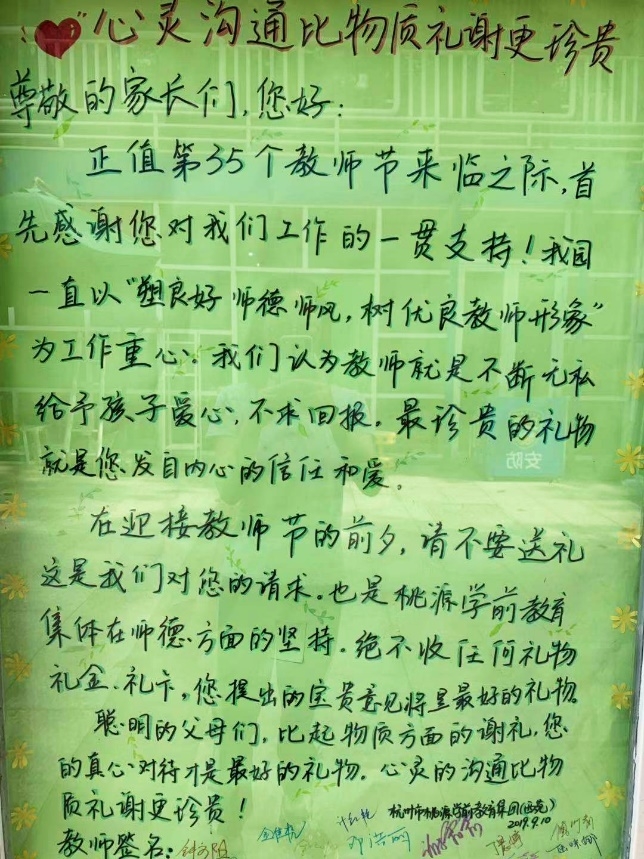 "心灵沟通比物质礼谢更珍贵
尊敬的家长们，您好：
正值第35个教师节来临之际，首
先感谢您对我们工作的一贯支持！我园
一直以"塑良好师德师风，树优良教师形象"
为工作重心。我们认为教师就是不断无私
给予孩子爱心，不求回报。最珍贵的礼物
就是您发自内心的信任和爱。
安防
在迎接教师节的前夕，请不要送礼
这是我们对您的请求。也是桃源学前教育
集体在师德方面的坚持。绝不收任何礼物
礼金、礼卡，您提出的宝贵意见将是最好的礼物。
聪明的父母们，比起物质方面的谢礼，您
的真心对待才是最好的礼物。心灵的沟通比物
质礼谢更珍贵！
杭州市桃源学前教育集团
2019.9.10
教师签名：